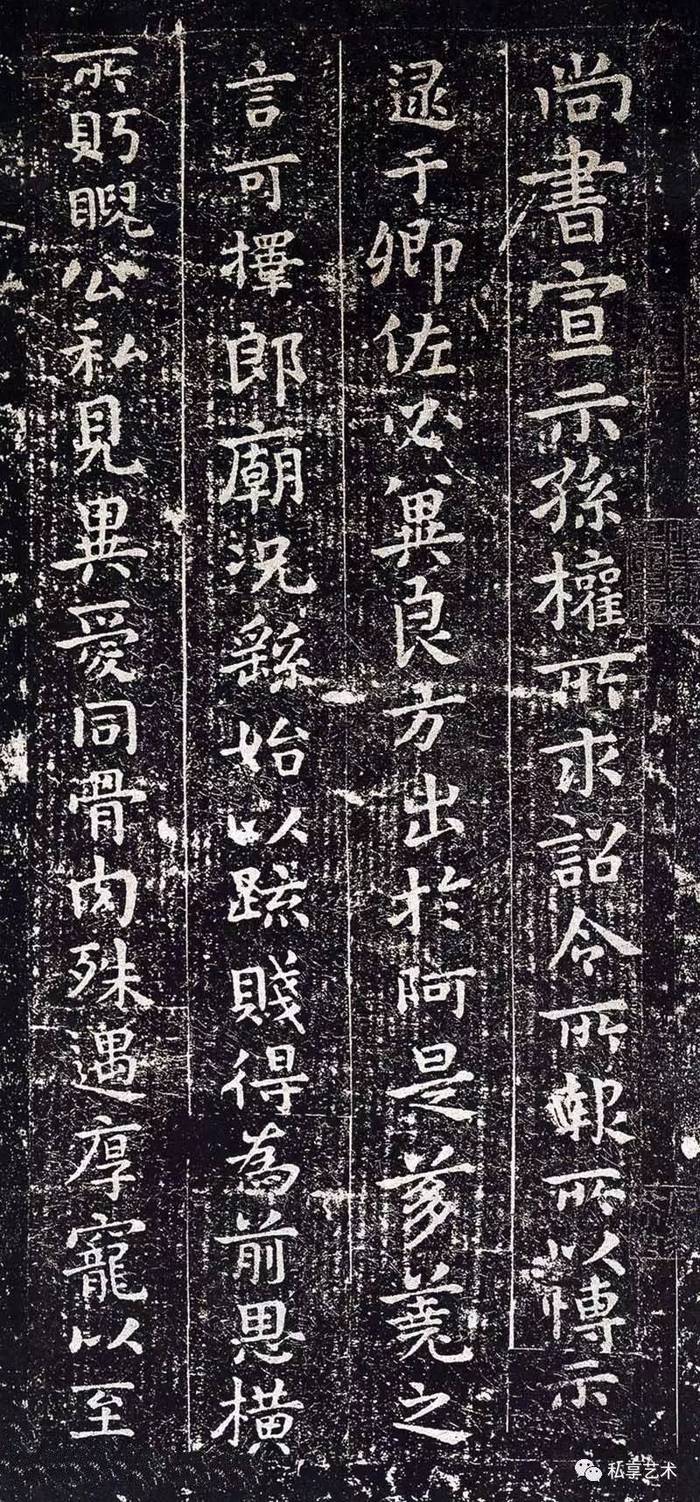 尚書宣示孫權所求詔令所報所以博示
逮于卿佐必冀良方出於阿是芻蕘之
言可擇郎廟況繇始以疏賤得為前恩橫
所眄睨公私見異愛同骨肉殊遇厚寵以至
私享艺术